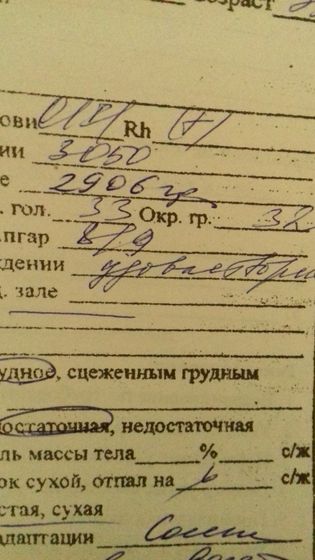 озраст
ови 0(I) Rh (+)
ии 3050
е 2906 гр
. гол. 33 Окр. гр. 32
.пгар 8/9
ждении удовлетвори
. зале
удное, сцеженным грудным
достаточная, недостаточная
ль массы тела % с/ж
ок сухой, отпал на 6 с/ж
стая, сухая
адаптации